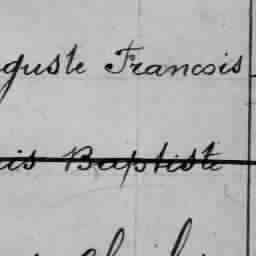 guste Francois
is Baptiste